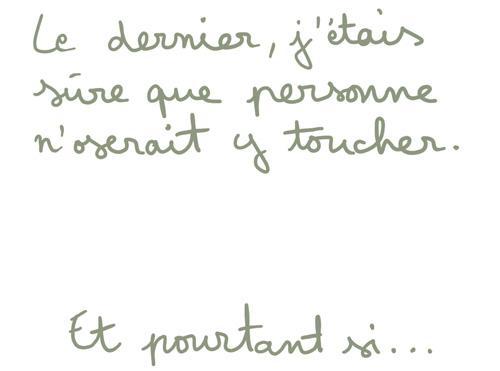 Le dernier, j'étais
sûre que personne
n'oserait y toucher.
Et pourtant si...